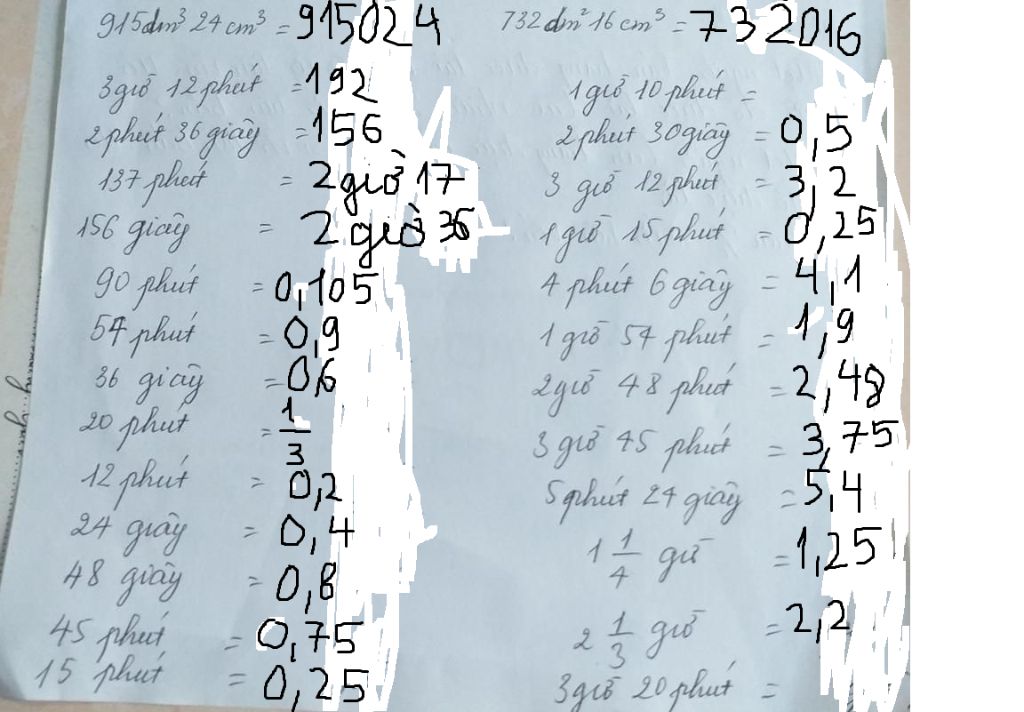 915dm³ 24 cm³ = 915024
732dm² 16 cm³ = 732016
3 giờ 12 phút = 192
1 giờ 10 phút =
2 phút 36 giây = 156
2 phút 30 giây = 0,5
137 phút = 2 giờ 17
3 giờ 12 phút = 3,2
156 giây = 2 giờ 36
1 giờ 15 phút = 0,25
90 phút = 0,105
4 phút 6 giây = 4,1
54 phút = 0,9
1 giờ 54 phút = 1,9
36 giây = 0,6
2 giờ 48 phút = 2,48
20 phút = 1/3
3 giờ 45 phút = 3,75
12 phút = 0,2
5 phút 24 giây = 5,4
24 giây = 0,4
1 1/4 giờ = 1,25
48 giây = 0,8
45 phút = 0,75
2 1/3 giờ = 2,2
15 phút = 0,25
3 giờ 20 phút =